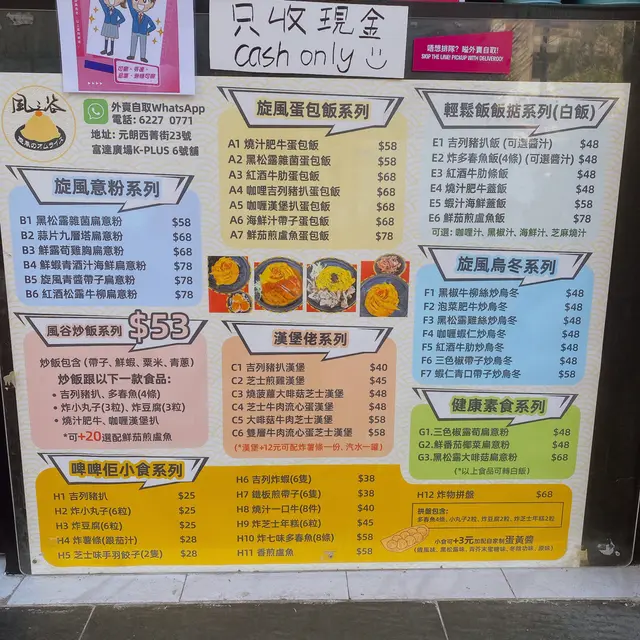 只收現金
cash only
唔想排隊？嗌外賣自取！
SKIP THE LINE! PICKUP WITH DELIVEROO!
風之谷
外賣自取WhatsApp
電話: 6227 0771
地址: 元朗西菁街23號
富達廣場K-PLUS 6號舖
旋風意粉系列
B1 黑松露雜菌扁意粉 $58
B2 蒜片九層塔扁意粉 $68
B3 鮮露荀雞胸扁意粉 $68
B4 鮮蝦青酒汁海鮮扁意粉 $78
B5 旋風青醬帶子扁意粉 $78
B6 紅酒松露牛柳扁意粉 $78
風谷炒飯系列 $53
炒飯包含 (帶子、鮮蝦、粟米、青蔥)
炒飯跟以下一款食品:
• 吉列豬扒、多春魚(4條)
• 炸小丸子(3粒)、炸豆腐(3粒)
• 燒汁肥牛、咖喱漢堡扒
*可+20選配鮮茄煎鱸魚
旋風蛋包飯系列
A1 燒汁肥牛蛋包飯 $58
A2 黑松露雜菌蛋包飯 $58
A3 紅酒牛肋蛋包飯 $68
A4 咖喱吉列豬扒蛋包飯 $68
A5 咖喱漢堡扒蛋包飯 $68
A6 海鮮汁帶子蛋包飯 $68
A7 鮮茄煎鱸魚蛋包飯 $78
漢堡佬系列
C1 吉列豬扒漢堡 $40
C2 芝士煎雞漢堡 $45
C3 燒菠蘿大啡菇芝士漢堡 $48
C4 芝士牛肉流心蛋漢堡 $48
C5 大啡菇牛肉芝士漢堡 $58
C6 雙層牛肉流心蛋芝士漢堡 $58
(*漢堡+12元可配炸薯條一份, 汽水一罐)
輕鬆飯飯掂系列(白飯)
E1 吉列豬扒飯 (可選醬汁) $48
E2 炸多春魚飯(4條) (可選醬汁) $48
E3 紅酒牛肋條飯 $48
E4 燒汁肥牛蓋飯 $48
E5 蝦汁海鮮蓋飯 $58
E6 鮮茄煎鱸魚飯 $78
可選: 咖喱汁, 黑椒汁, 海鮮汁, 芝麻燒汁
旋風烏冬系列
F1 黑椒牛柳絲炒烏冬 $48
F2 泡菜肥牛炒烏冬 $48
F3 黑松露雞絲炒烏冬 $48
F4 咖喱蝦仁炒烏冬 $48
F5 紅酒牛肋炒烏冬 $48
F6 三色椒帶子炒烏冬 $48
F7 蝦仁青口帶子炒烏冬 $58
健康素食系列
G1.三色椒露荀扁意粉 $48
G2.鮮番茄椰菜扁意粉 $48
G3.黑松露大啡菇扁意粉 $68
(*以上食品可轉白飯)
啤啤佢小食系列
H1 吉列豬扒 $25
H2 炸小丸子(6粒) $25
H3 炸豆腐(6粒) $25
H4 炸薯條(跟茄汁) $28
H5 芝士味手羽餃子(2隻) $28
H6 吉列炸蝦(6隻) $38
H7 鐵板煎帶子(6隻) $38
H8 燒汁一口牛(8件) $40
H9 炸芝士年糕(6粒) $45
H10 炸七味多春魚(8條) $58
H11 香煎鱸魚 $58
H12 炸物拼盤 $68
拼盤包含:
多春魚4條, 小丸子2粒, 炸豆腐2粒, 炸芝士年糕2粒
小食可+3元加配自家制蛋黃醬